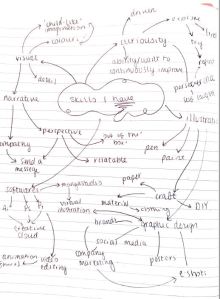 driven
"child-like"
imagination
colour
curiosity
visual
ability/want to
continuously improve
detail
narrative
skills I have
illustrat
perspective
out of the
box
pen
empathy
send a
message
relatable
paper
softwares
mangastudio
craft
visual
illustration
material
clothing
DIY
graphic design
brands
creative
cloud
social media
company
marketing
posters
animation
video
editing